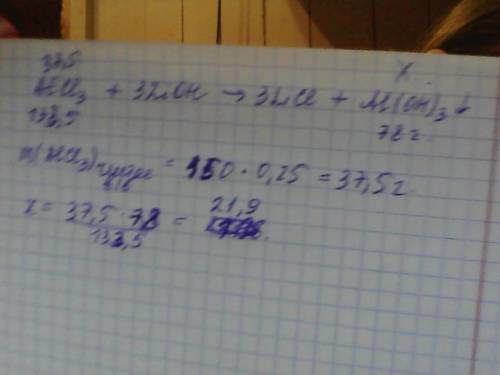 37,5 x
AlCl₃ + 3LiOH → 3LiCl + Al(OH)₃↓
133,5 78 г
m(AlCl₃) = 150 · 0,25 = 37,5 г
x = 37,5 · 78 / 133,5 = 21,9